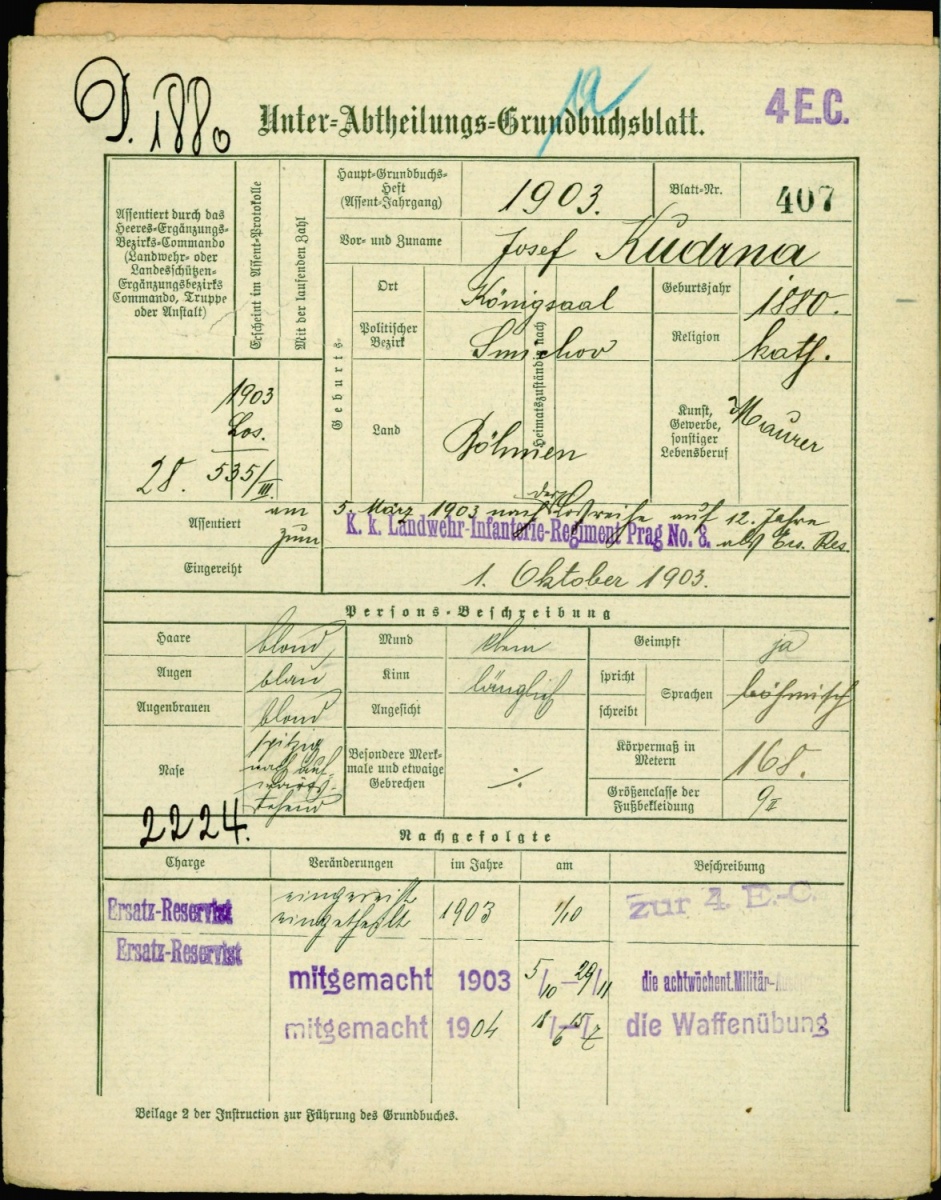 D. 1880
Unter-Abtheilungs-Grundbuchsblatt.
4 E.C.
Assentiert durch das
Heeres-Ergänzungs-
Bezirks-Commando
(Landwehr- oder
Landesschützen-
Ergänzungsbezirks
Commando, Truppe
oder Anstalt)
Erscheint im Assent-Protokolle
Mit der laufenden Zahl
Haupt-Grundbuchs-
Heft
(Assent-Jahrgang)
1903.
Blatt-Nr.
407
Vor- und Zuname
Josef Kudrna
Geburts-
Ort
Königsaal
Geburtsjahr
1880.
Politischer
Bezirk
Smichov
Religion
kath.
Heimatszuständig nach
Land
Böhmen
Kunst,
Gewerbe,
sonstiger
Lebensberuf
Maurer
1903
Los.
28. 535/III.
Assentiert
am
zum
5. März 1903 nach der Losreihe auf 12. Jahre
K. k. Landwehr-Infanterie-Regiment Prag No. 8. als Ers. Res.
Eingereiht
1. Oktober 1903.
Persons-Beschreibung
Haare
blond
Mund
klein
Geimpft
ja
Augen
blau
Kinn
länglich
spricht
schreibt
Sprachen
böhmisch
Augenbrauen
blond
Angesicht
Nase
spitzig
nach auf-
wärts-
stehend
Besondere Merk-
male und etwaige
Gebrechen
./.
Körpermaß in
Metern
168.
Größenclasse der
Fußbekleidung
9 II
2224.
Nachgefolgte
Charge
Veränderungen
im Jahre
am
Beschreibung
Ersatz-Reservist
eingereiht
eingetheilt
1903
1/10
zur 4. E.-C.
Ersatz-Reservist
mitgemacht 1903 5/10 – 29/11 die achtwöchent. Militär-
mitgemacht 1904 18/6 – 15/7 die Waffenübung
Beilage 2 der Instruction zur Führung des Grundbuches.